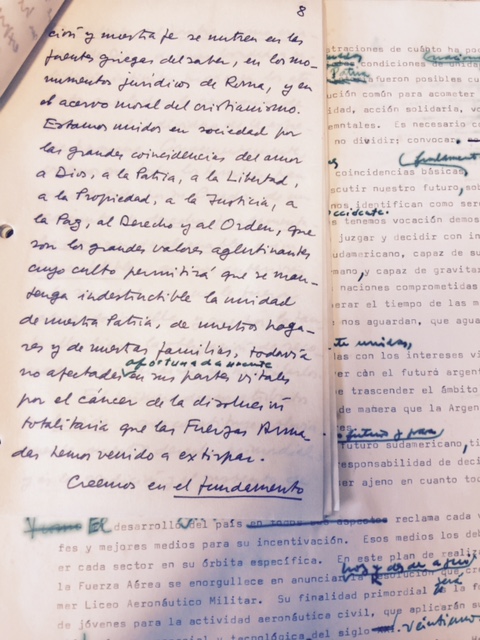 8
ción y nuestra fe se nutren en las
fuentes griegas del saber, en los mo-
numentos jurídicos de Roma, y en
el acervo moral del cristianismo.
Estamos unidos en sociedad por
las grandes coincidencias del amor
a Dios, a la Patria, a la Libertad,
a la Propiedad, a la Justicia, a
la Paz, al Derecho y al Orden, que
son los grandes valores aglutinantes
cuyo culto permitirá que se man-
tenga indestructible la unidad
de nuestra Patria, de nuestros hoga-
res y de nuestras familias, todavía
afortunadamente
no afectados en sus partes vitales
por el cáncer de la disolución
totalitaria que las Fuerzas Arma-
das hemos venido a extirpar.
Creemos en el fundamento
straciones de cuánto ha po
condiciones de unidad
fueron posibles cu
ución común para acometer
idad, acción solidaria, vo
ementales. Es necesario c
no dividir; convocar
(fundamento
coincidencias básicas,
scutir nuestro futuro, sob
nos identifican como sere
s tenemos vocación demos
juzgar y decidir con in
udamericano, capaz de su
mano, y capaz de gravitar
naciones comprometidas
erar el tiempo de las m
e nos aguardan, que aguar
las con los intereses vi
ver con el futuro argenti
e trascender el ámbito
de manera que la Argen
res.
futuro y para
futuro sudamericano,
esponsabilidad de deci
er ajeno en cuanto tou
El desarrollo del país en todos sus aspectos reclama cada v
fes y mejores medios para su incentivación. Esos medios los deb
er cada sector en su órbita específica. En este plan de realiz
la Fuerza Aérea se enorgullece en anunciar la resolución que cre
mer Liceo Aeronáutico Militar. Su finalidad primordial la f
será
de jóvenes para la actividad aeronáutica civil, que aplicarán su
social y tecnológica del siglo veintiuno